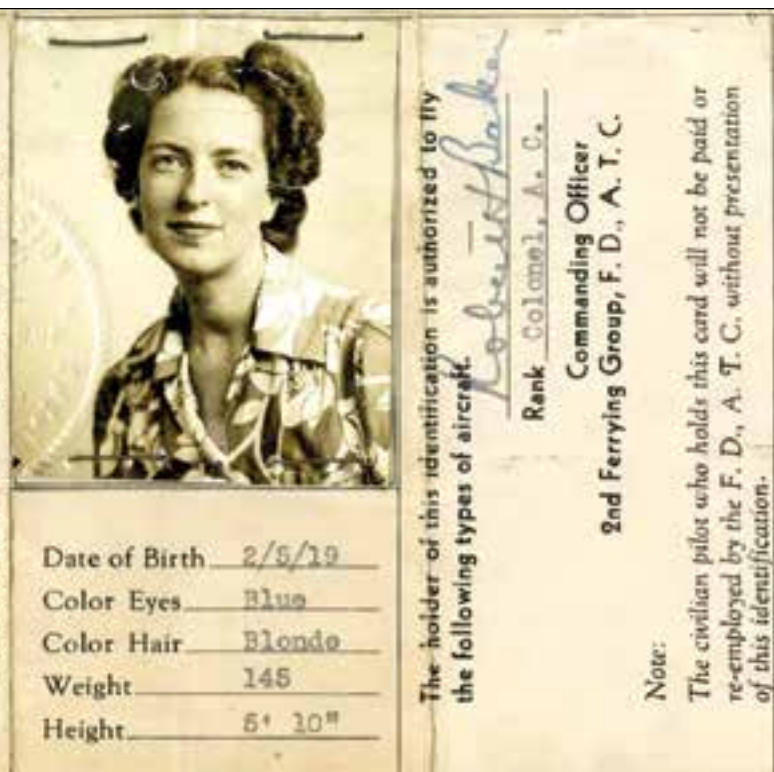 Date of Birth 2/5/19
Color Eyes Blue
Color Hair Blonde
Weight 145
Height 5' 10"
The holder of this identification is authorized to fly
the following types of aircraft.
Robert H Baker
Rank Colonel, A. C.
Commanding Officer
2nd Ferrying Group, F. D., A. T. C.
Note:
The civilian pilot who holds this card will not be paid or
re-employed by the F. D., A. T. C. without presentation
of this identification.